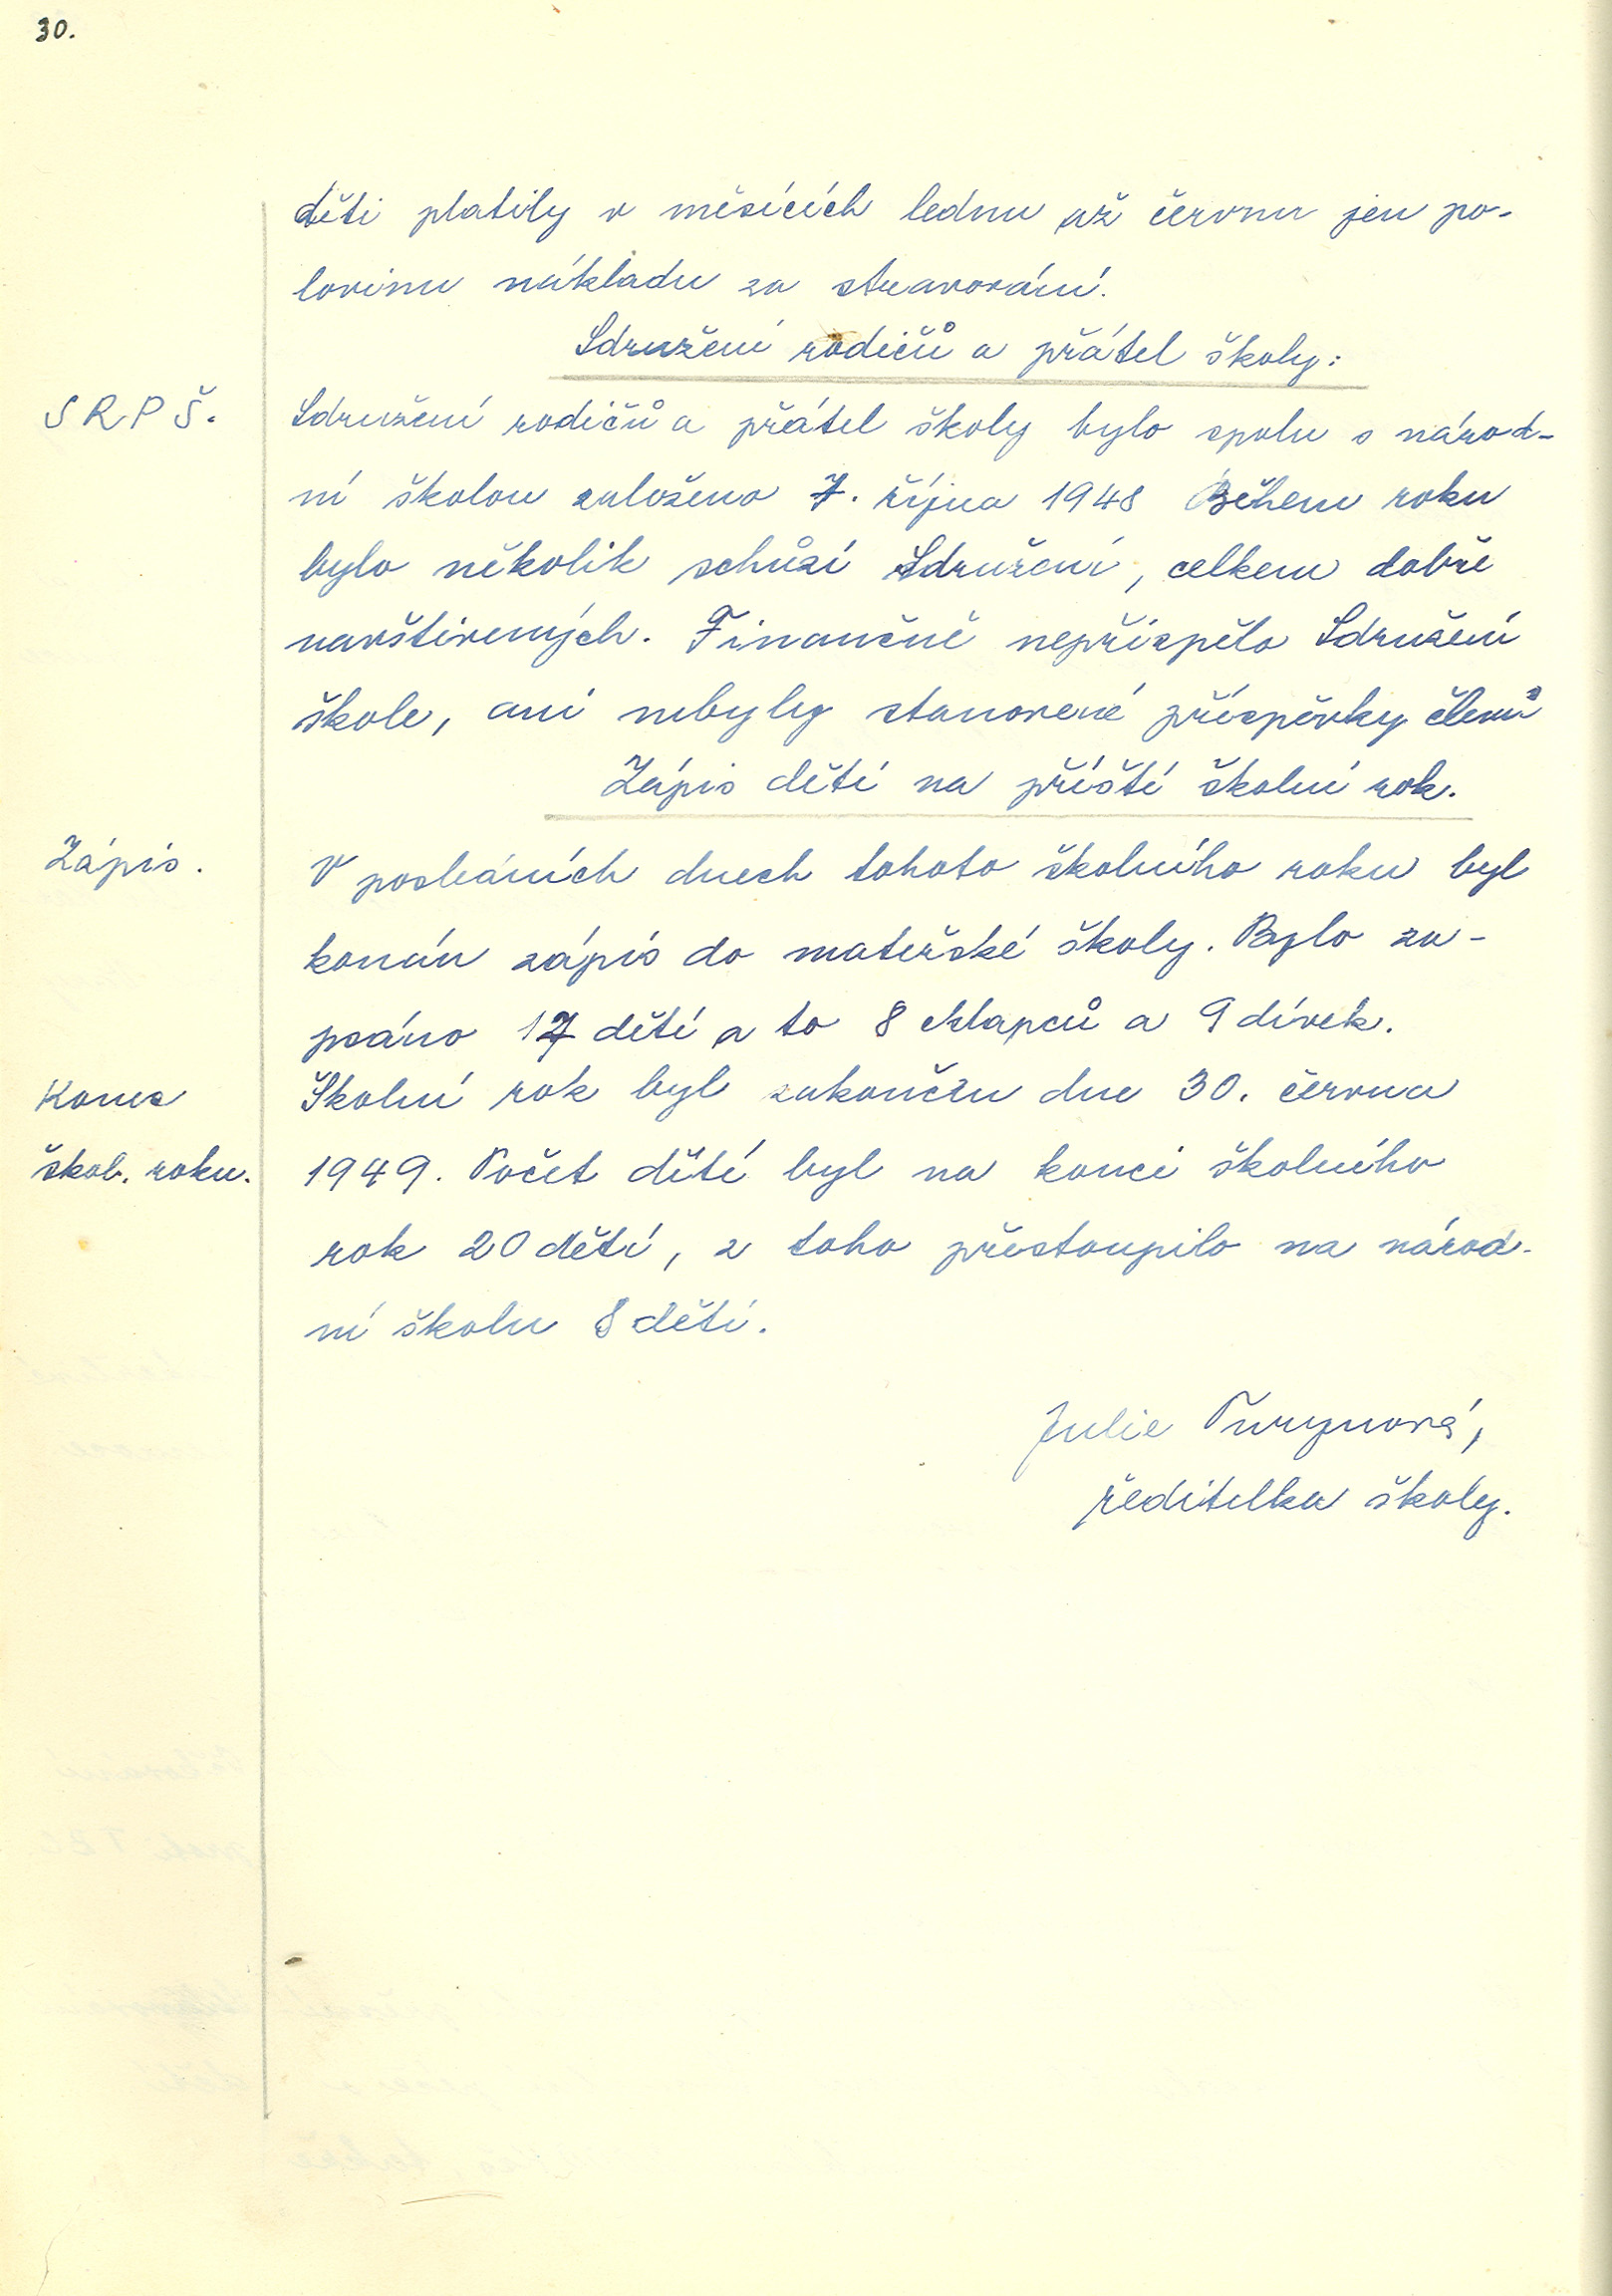 30.
děti platily v měsících lednu až červnu jen po-
lovinu nákladu za stravování.
Sdružení rodičů a přátel školy:
S R P Š.
Sdružení rodičů a přátel školy bylo spolu s národ-
ní školou založeno 7. října 1948 Během roku
bylo několik schůzí Sdružení, celkem dobře
navštívených. Finančně nepřispělo Sdružení
škole, ani nebyly stanovené příspěvky členů
Zápis dětí na příští školní rok.
Zápis.
V posledních dnech tohoto školního roku byl
konán zápis do mateřské školy. Bylo za-
psáno 17 dětí a to 8 chlapců a 9 dívek.
Konec
škol. roku.
Školní rok byl zakončen dne 30. června
1949. Počet dětí byl na konci školního
rok 20 dětí, z toho přestoupilo na národ-
ní školu 8 dětí.
Julie
ředitelka školy.